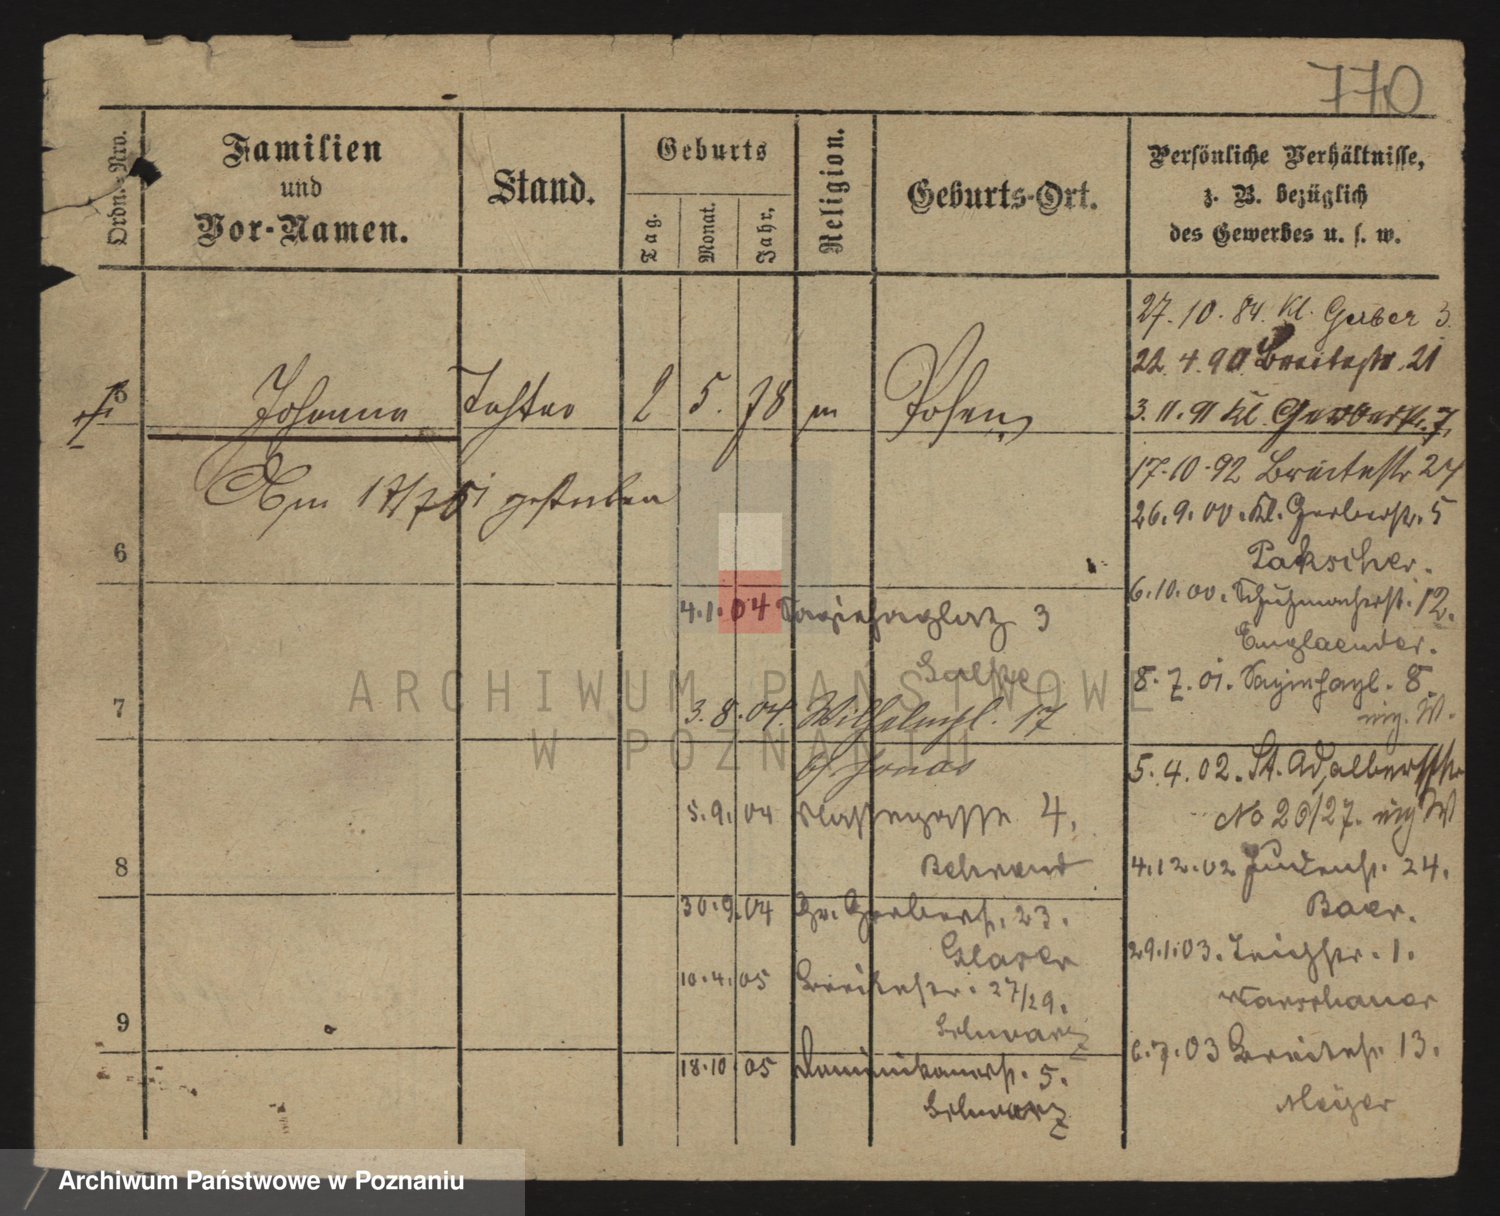 770
Ordn.-Nro.
Familien
und
Vor-Namen.
Stand.
Geburts
Tag.
Monat.
Jahr,
Religion.
Geburts-Ort.
Persönliche Verhältnisse,
z. B. bezüglich
des Gewerbes u. s. w.
27.10.84. Kl. Gerber 3.
22.4.90. Breitestr. 21
5 Johanna Tochter 2 5. 78 m Posen
3.11.91 Kl. Gerberstr. 7.
17.10.92 Breitestr 27
Am gestorben
26.9.00. Kl. Gerberstr. 5
Pakscher.
6
6.10.00. Schuhmacherst. 12.
4.1.04 Sapiehaplatz 3
Englaender.
8.7.01. Sapiehapl. 8.
7
3.8.04. Wilhelmspl. 17
b/ Jonas
5.4.02. St. Adalbertstr
No 26/27.
5.9.04 4.
8
Behrend
4.12.02 Judenstr. 24.
Baer.
30.9.04 Gr. Gerberstr. 23.
Glaser
29.1.03. Teichstr. 1.
Warschauer
10.4.05 Breitestr. 27/29.
Schwarz
9
6.7.03 Breitestr. 13.
Meyer
18.10.05 Dominikanerstr. 5.
Schwarz
ARCHIWUM PAŃSTWOWE
W POZNANIU
Archiwum Państwowe w Poznaniu